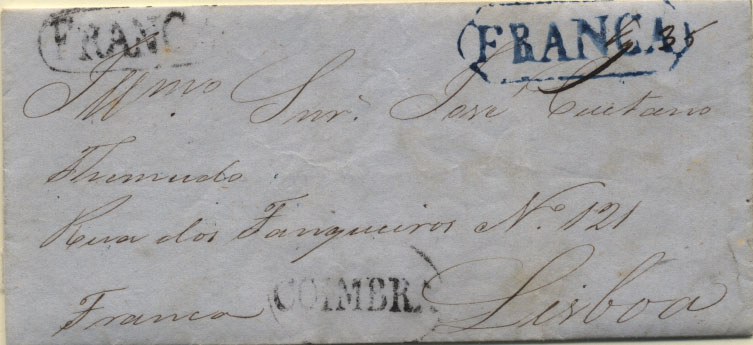 FRANCA FRANCA 35
Illmo Snr. José Caetano
Themudo.
Rua dos Fanqueiros No. 121
Franca COIMBRA Lisboa